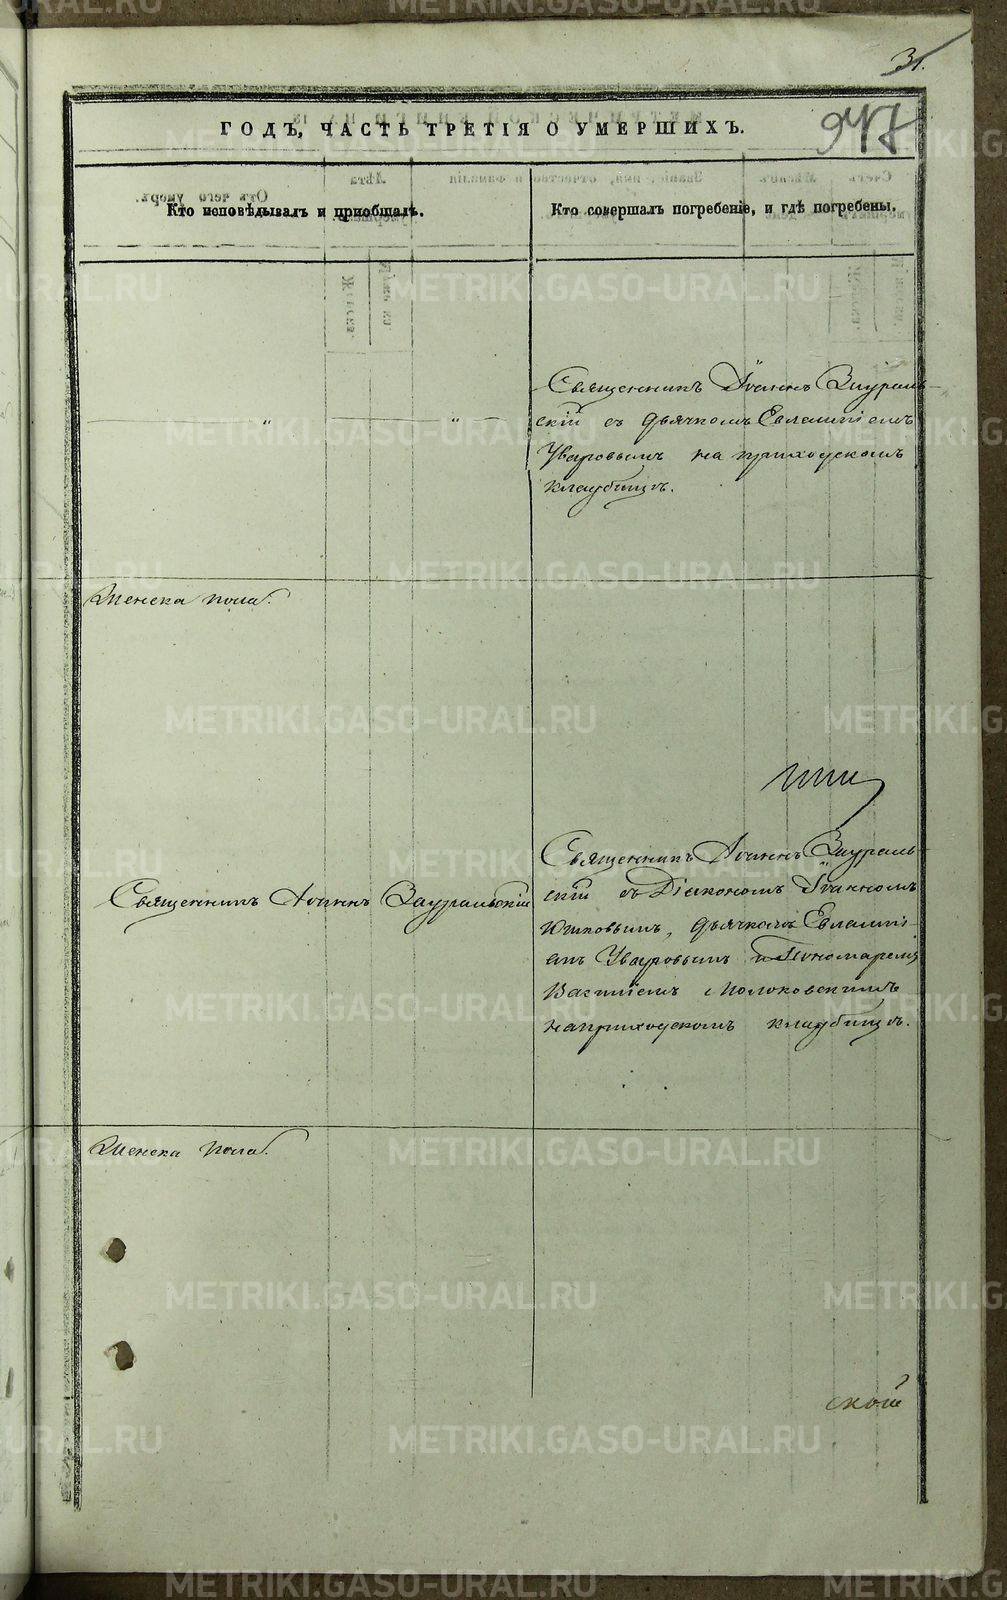 31.
947
ГОДЪ, ЧАСТЬ ТРЕТІЯ О УМЕРШИХЪ.
Кто исповѣдывалъ и пріобщалъ.
Кто совершалъ погребеніе, и гдѣ погребены.
Священникъ Іоаннъ Заураль-
скій съ дьячкомъ Евлампіемъ
Уваровымъ на приходскомъ
кладбищѣ.
" "
Женска пола.
Священникъ Іоаннъ Зауральскій
Священникъ Іоаннъ Заураль-
скій съ Діакономъ Іоанномъ
дьячкомъ Евлампі-
емъ Уваровымъ и Пономаремъ
Василіемъ
на приходскомъ кладбищѣ.
Женска пола.
ской
METRIKI.GASO-URAL.RU